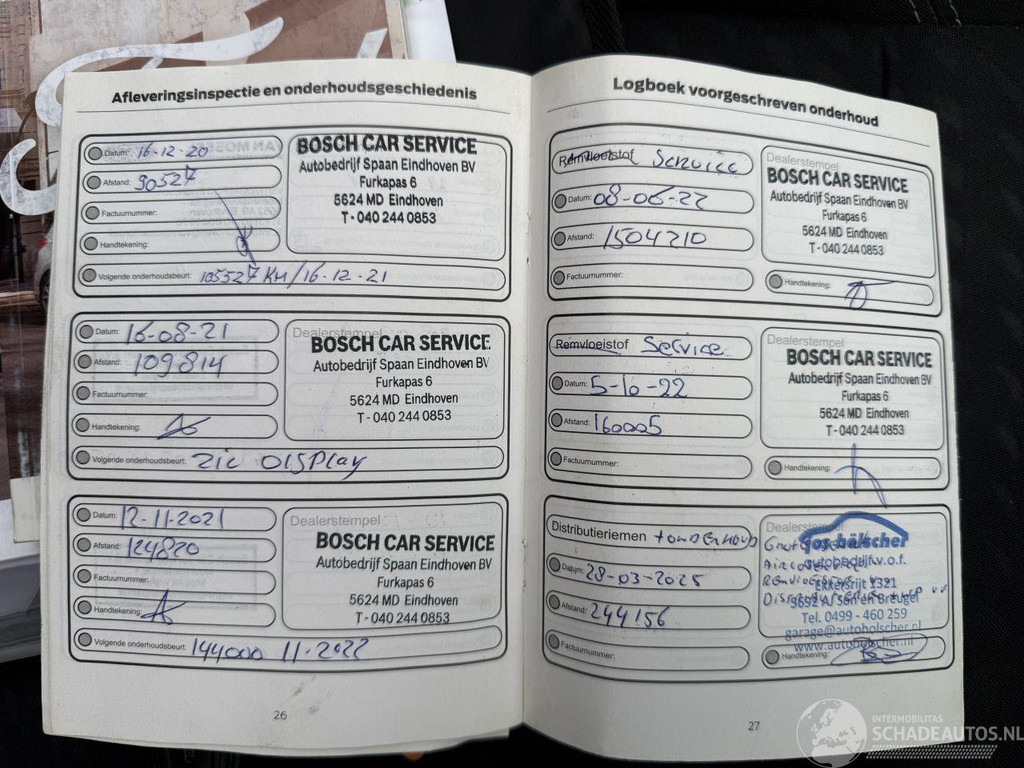 Afleveringsinspectie en onderhoudsgeschiedenis
Datum: 16-12-20
Afstand: 90527
Factuurnummer:
Handtekening:
Volgende onderhoudsbeurt: 105527 KM/16-12-21
BOSCH CAR SERVICE
Autobedrijf Spaan Eindhoven BV
Furkapas 6
5624 MD Eindhoven
T - 040 244 0853
Datum: 16-08-21
Afstand: 109814
Factuurnummer:
Handtekening:
Volgende onderhoudsbeurt: zie DISPlay
Dealerstempel
BOSCH CAR SERVICE
Autobedrijf Spaan Eindhoven BV
Furkapas 6
5624 MD Eindhoven
T - 040 244 0853
Datum: 12-11-2021
Afstand: 124820
Factuurnummer:
Handtekening:
Volgende onderhoudsbeurt: 144000 11-2022
Dealerstempel
BOSCH CAR SERVICE
Autobedrijf Spaan Eindhoven BV
Furkapas 6
5624 MD Eindhoven
T - 040 244 0853
26
Logboek voorgeschreven onderhoud
Remvloeistof Service
Datum: 08-06-22
Afstand: 1504210
Factuurnummer:
Dealerstempel
BOSCH CAR SERVICE
Autobedrijf Spaan Eindhoven BV
Furkapas 6
5624 MD Eindhoven
T - 040 244 0853
Handtekening:
Remvloeistof Service
Datum: 5-10-22
Afstand: 160005
Factuurnummer:
Dealerstempel
BOSCH CAR SERVICE
Autobedrijf Spaan Eindhoven BV
Furkapas 6
5624 MD Eindhoven
T - 040 244 0853
Handtekening:
Distributieriemen + onderhoud
Datum: 28-03-2025
Afstand: 244156
Factuurnummer:
Dealerstempel
Jos hölscher
autobedrijf v.o.f.
Ekkersrijt 1321
5692 AJ Son en Breugel
Tel. 0499 - 460 259
garage@autoholscher.nl
www.autoholscher.nl
Handtekening:
27
INTERMOBILITAS
SCHADEAUTOS.NL